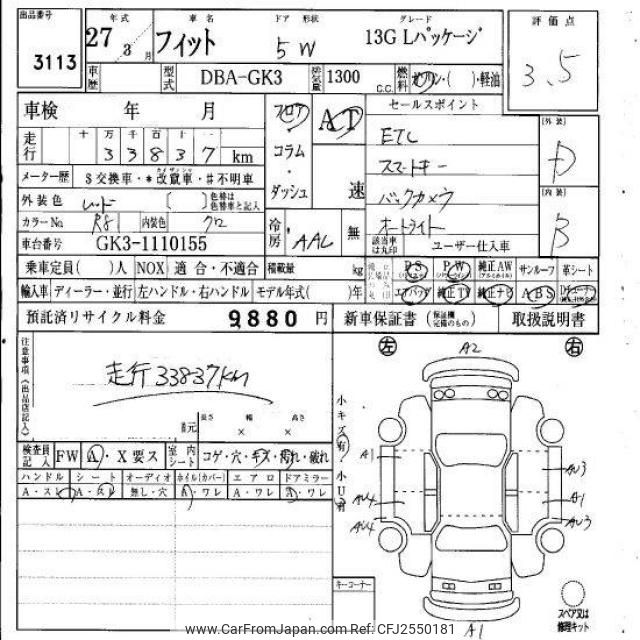 出品番号 3113
年式 27 3月 車名 フィット ドア 形状 5W グレード 13G Lパッケージ
評価点 3.5
車歴 型式 DBA-GK3 排気量 1300 c.c. 燃料 ガソリン・( )・軽油
車検 年 月
フロア AT セールスポイント
走行 十 万 千 百 十 一
3 3 8 3 7 km
コラム・ダッシュ 速
ETC
スマートキー
バックカメラ
オートライト
[外装] D
[内装] B
メーター歴 $交換車・*改竄車・#不明車
外装色 レッド ( ) 色替は色替車と記入
カラーNo. R81 内装色 クロ
冷房 AAC 無
該当車は丸印 ユーザー仕入車
車台番号 GK3-1110155
乗車定員( )人 NOX 適合・不適合 積載量 kg
PS PW 純正AW サンルーフ 革シート
輸入車 ディーラー・並行 左ハンドル・右ハンドル モデル年式( )年
エアバッグ 純正TV 純正ナビ ABS
預託済リサイクル料金 9880 円 新車保証書 (保証欄完備のもの) 取扱説明書
注意事項(出品店記入)
走行33837km
長さ 幅 高さ
× ×
検査員記入 FW A・X要ス 室内シート コゲ・穴・キズ・汚れ・破れ
ハンドル シート オーディオ ホイル(カバー) エアロ ドアミラー
A・スレ A・スレ 無し・穴 A・ワレ A・ワレ A・ワレ
左 右
A2
小キズ有 小U有
A1 AU3
AU4 A1
AU4 AU3
A1
キーコーナー
スペア又は修理キット
www.CarFromJapan.com Ref.Code: CFJ2550181